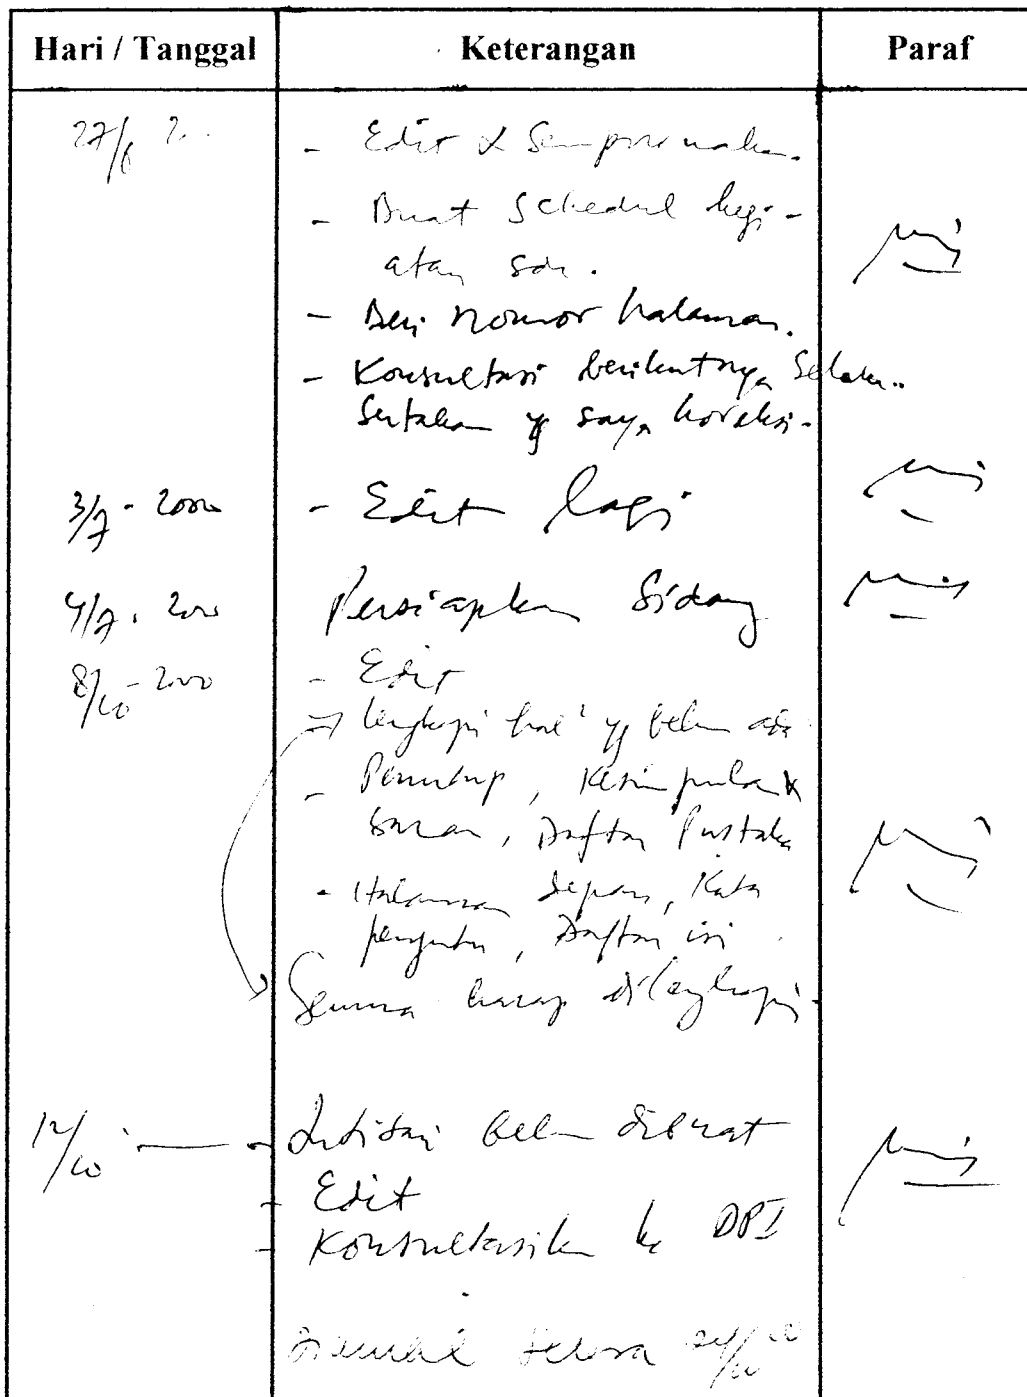 Hari / Tanggal Keterangan Paraf
27/6 - Edit & Sempurnakan.
- Buat Schedul kegi-
atan sdr.
- Beri Nomor halaman.
- Konsultasi berikutnya Selalu..
Sertakan yg saya koreksi-
3/7 - 2000 - Edit lagi
4/7. 2000 Persiapkan Sidang
8/10 - 2000 - Edit
→ lengkapi hal² yg belum ada
- Penutup, Kesimpulan &
Saran, Daftar Pustaka
- Halaman depan, Kata
pengantar, Daftar isi.
Semua harap dilengkapi-
12/10 - belum dibuat
- Edit
- Konsultasikan ke DPI